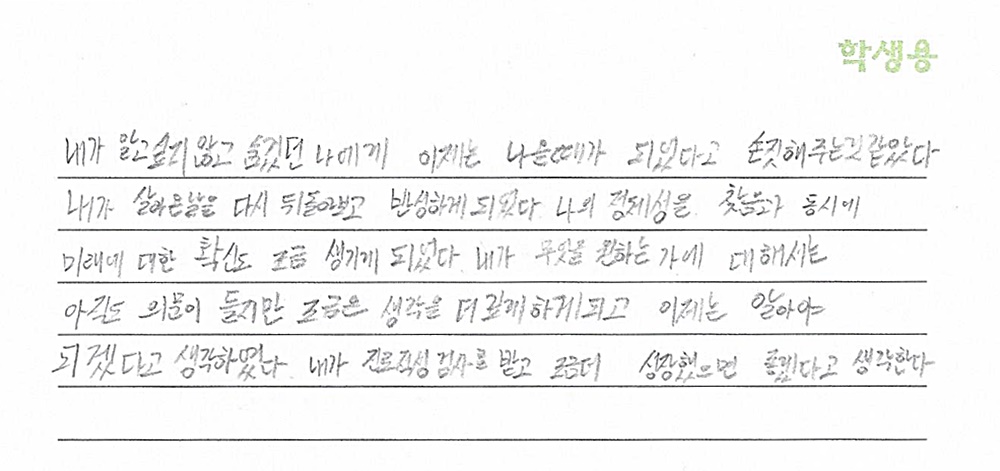 학생용
내가 알고싶지 않고 숨겼던 나에게 이제는 나올때가 되었다고 손짓해주는것 같았다
내가 살아온날을 다시 뒤돌아보고 반성하게 되었다. 나의 정체성을 찾음과 동시에
미래에 대한 확신도 조금 생기게 되었다. 내가 무엇을 원하는 가에 대해서는
아직도 의문이 들지만 조금은 생각을 더 깊게하게되고 이제는 알아야
되겠다고 생각하였다. 내가 진로적성검사를 받고 조금더 성장했으면 좋겠다고 생각한다